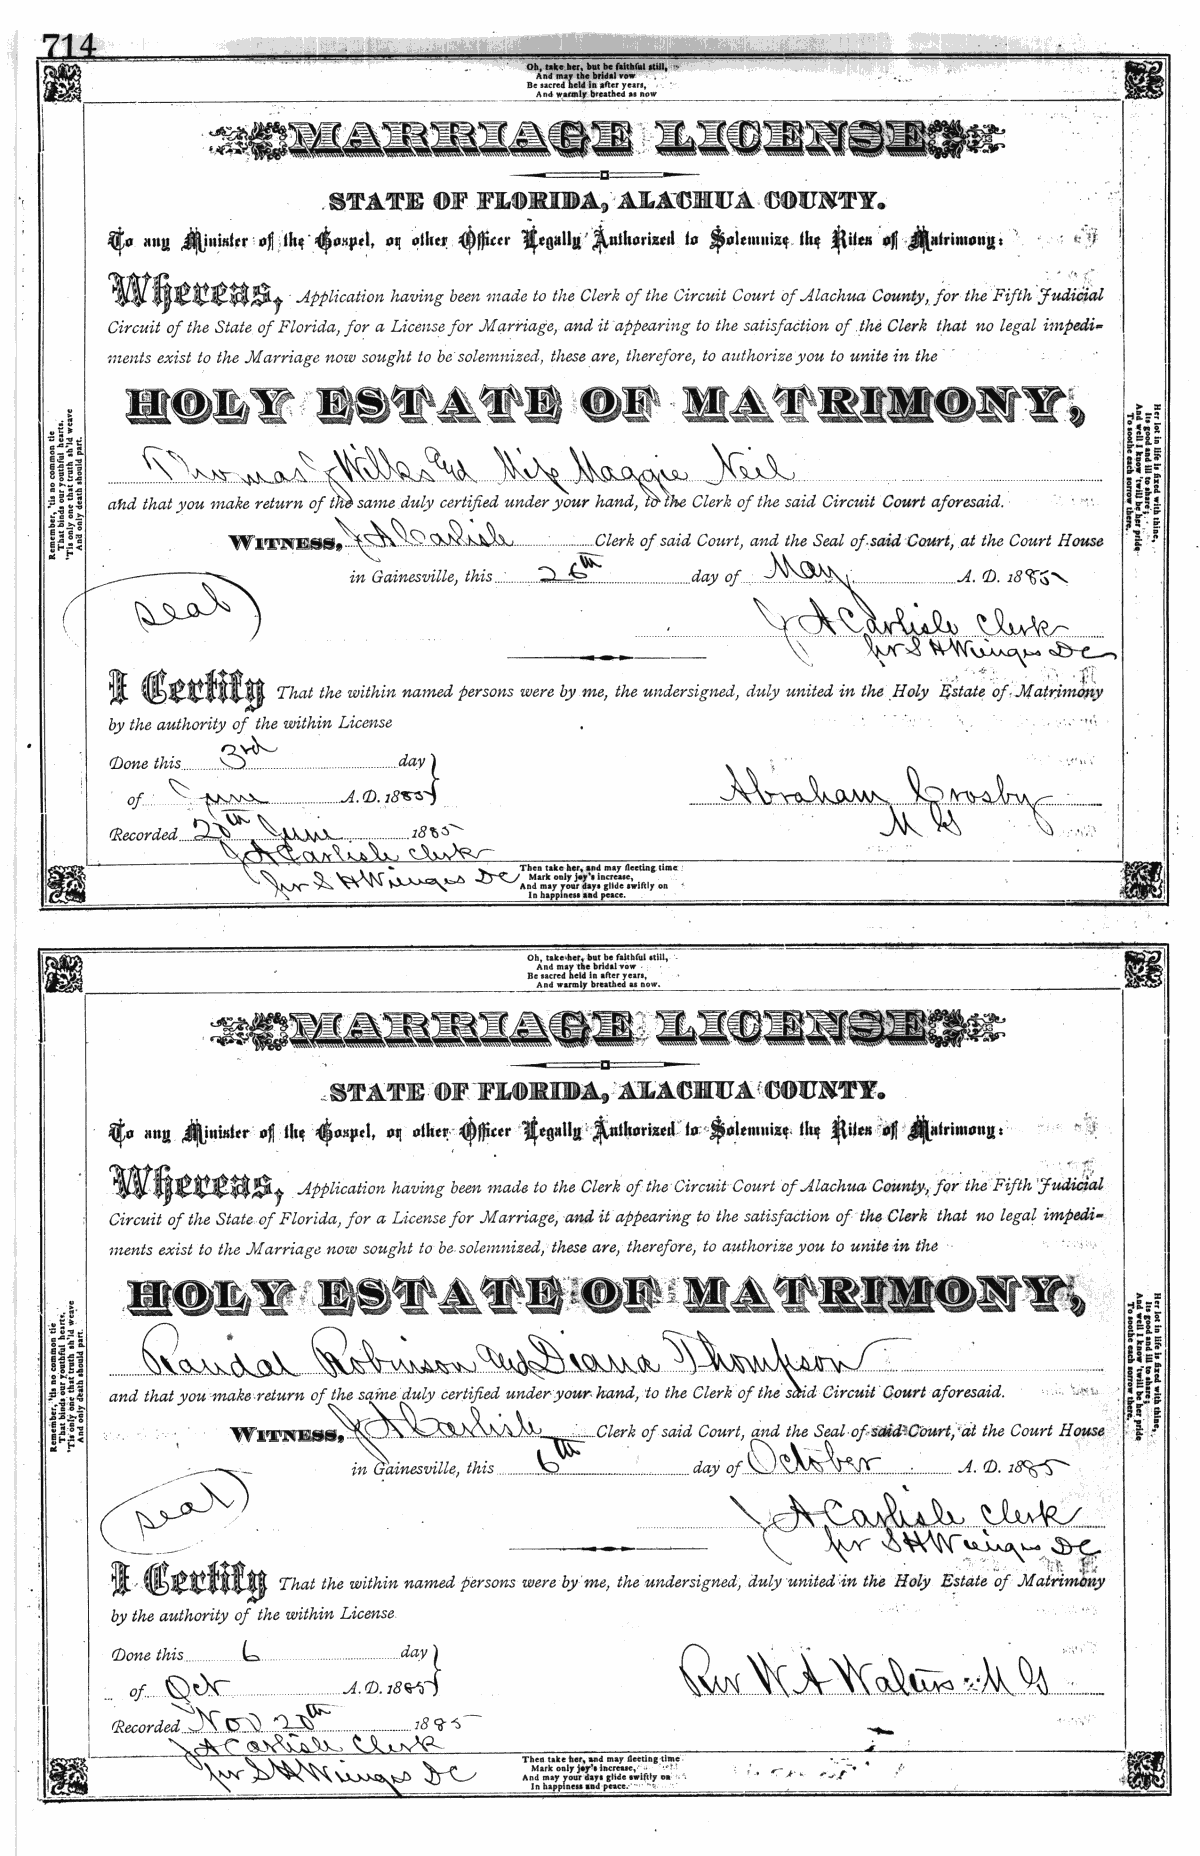 714
Oh, take her, but be faithful still,
And may the bridal vow
Be sacred held in after years,
And warmly breathed as now
MARRIAGE LICENSE
STATE OF FLORIDA, ALACHUA COUNTY.
To any Minister of the Gospel, or other Officer Legally Authorized to Solemnize the Rites of Matrimony:
Whereas, Application having been made to the Clerk of the Circuit Court of Alachua County, for the Fifth Judicial
Circuit of the State of Florida, for a License for Marriage, and it appearing to the satisfaction of the Clerk that no legal impedi-
ments exist to the Marriage now sought to be solemnized, these are, therefore, to authorize you to unite in the
HOLY ESTATE OF MATRIMONY,
Thomas J Wilks and Miss Maggie Neil
and that you make return of the same duly certified under your hand, to the Clerk of the said Circuit Court aforesaid.
WITNESS, J A Carlisle Clerk of said Court, and the Seal of said Court, at the Court House
in Gainesville, this 26th day of May A. D. 1885
seal
J A Carlisle Clerk
per S H Wienges DC
I Certify That the within named persons were by me, the undersigned, duly united in the Holy Estate of Matrimony
by the authority of the within License
Done this 3rd day
of June A. D. 1885
Abraham Crosby
M G
Recorded 20th June 1885
J A Carlisle Clerk
per S H Wienges DC
Then take her, and may fleeting time
Mark only joy's increase,
And may your days glide swiftly on
In happiness and peace.
Remember, 'tis no common tie
That binds our youthful hearts,
'Tis only one that truth sh'ld weave
And only death should part.
Her lot in life is fixed with thine,
Its good and ill to share;
And well I know 'twill be her pride
To soothe each sorrow there.
Oh, take her, but be faithful still,
And may the bridal vow
Be sacred held in after years,
And warmly breathed as now.
MARRIAGE LICENSE
STATE OF FLORIDA, ALACHUA COUNTY.
To any Minister of the Gospel, or other Officer Legally Authorized to Solemnize the Rites of Matrimony:
Whereas, Application having been made to the Clerk of the Circuit Court of Alachua County, for the Fifth Judicial
Circuit of the State of Florida, for a License for Marriage, and it appearing to the satisfaction of the Clerk that no legal impedi-
ments exist to the Marriage now sought to be solemnized, these are, therefore, to authorize you to unite in the
HOLY ESTATE OF MATRIMONY,
Randal Robinson and Diana Thompson
and that you make return of the same duly certified under your hand, to the Clerk of the said Circuit Court aforesaid.
WITNESS, J A Carlisle Clerk of said Court, and the Seal of said Court, at the Court House
in Gainesville, this 6th day of October A. D. 1885
seal
J A Carlisle Clerk
per S H Wienges DC
I Certify That the within named persons were by me, the undersigned, duly united in the Holy Estate of Matrimony
by the authority of the within License
Done this 6 day
of Oct A. D. 1885
Rev W A Walters M G
Recorded Nov 20th 1885
J A Carlisle Clerk
per S H Wienges DC
Then take her, and may fleeting time
Mark only joy's increase,
And may your days glide swiftly on
In happiness and peace.
Remember, 'tis no common tie
That binds our youthful hearts,
'Tis only one that truth sh'ld weave
And only death should part.
Her lot in life is fixed with thine,
Its good and ill to share;
And well I know 'twill be her pride
To soothe each sorrow there.